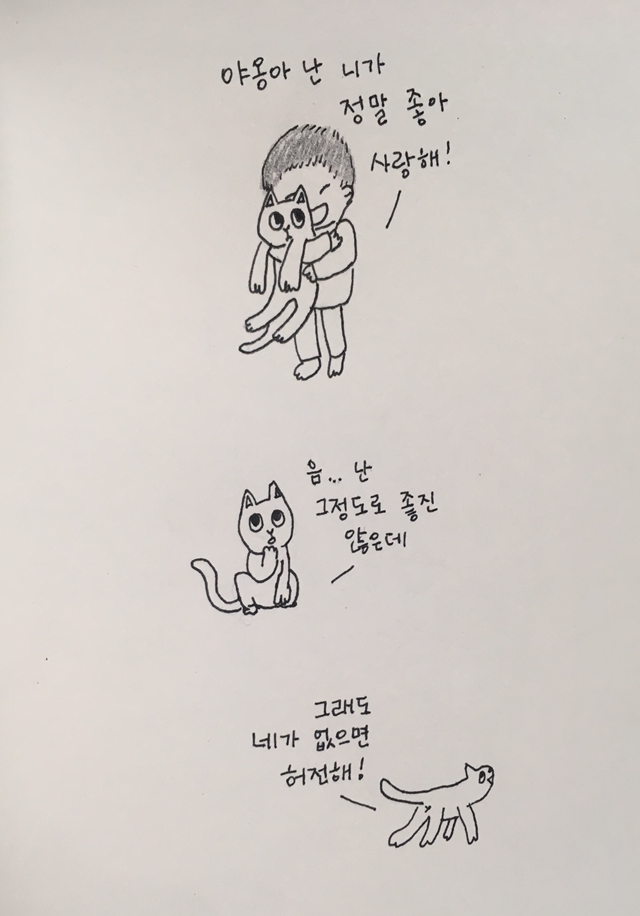 야옹아 난 니가
정말 좋아
사랑해!
음... 난
그정도로 좋진
않은데
그래도
네가 없으면
허전해!